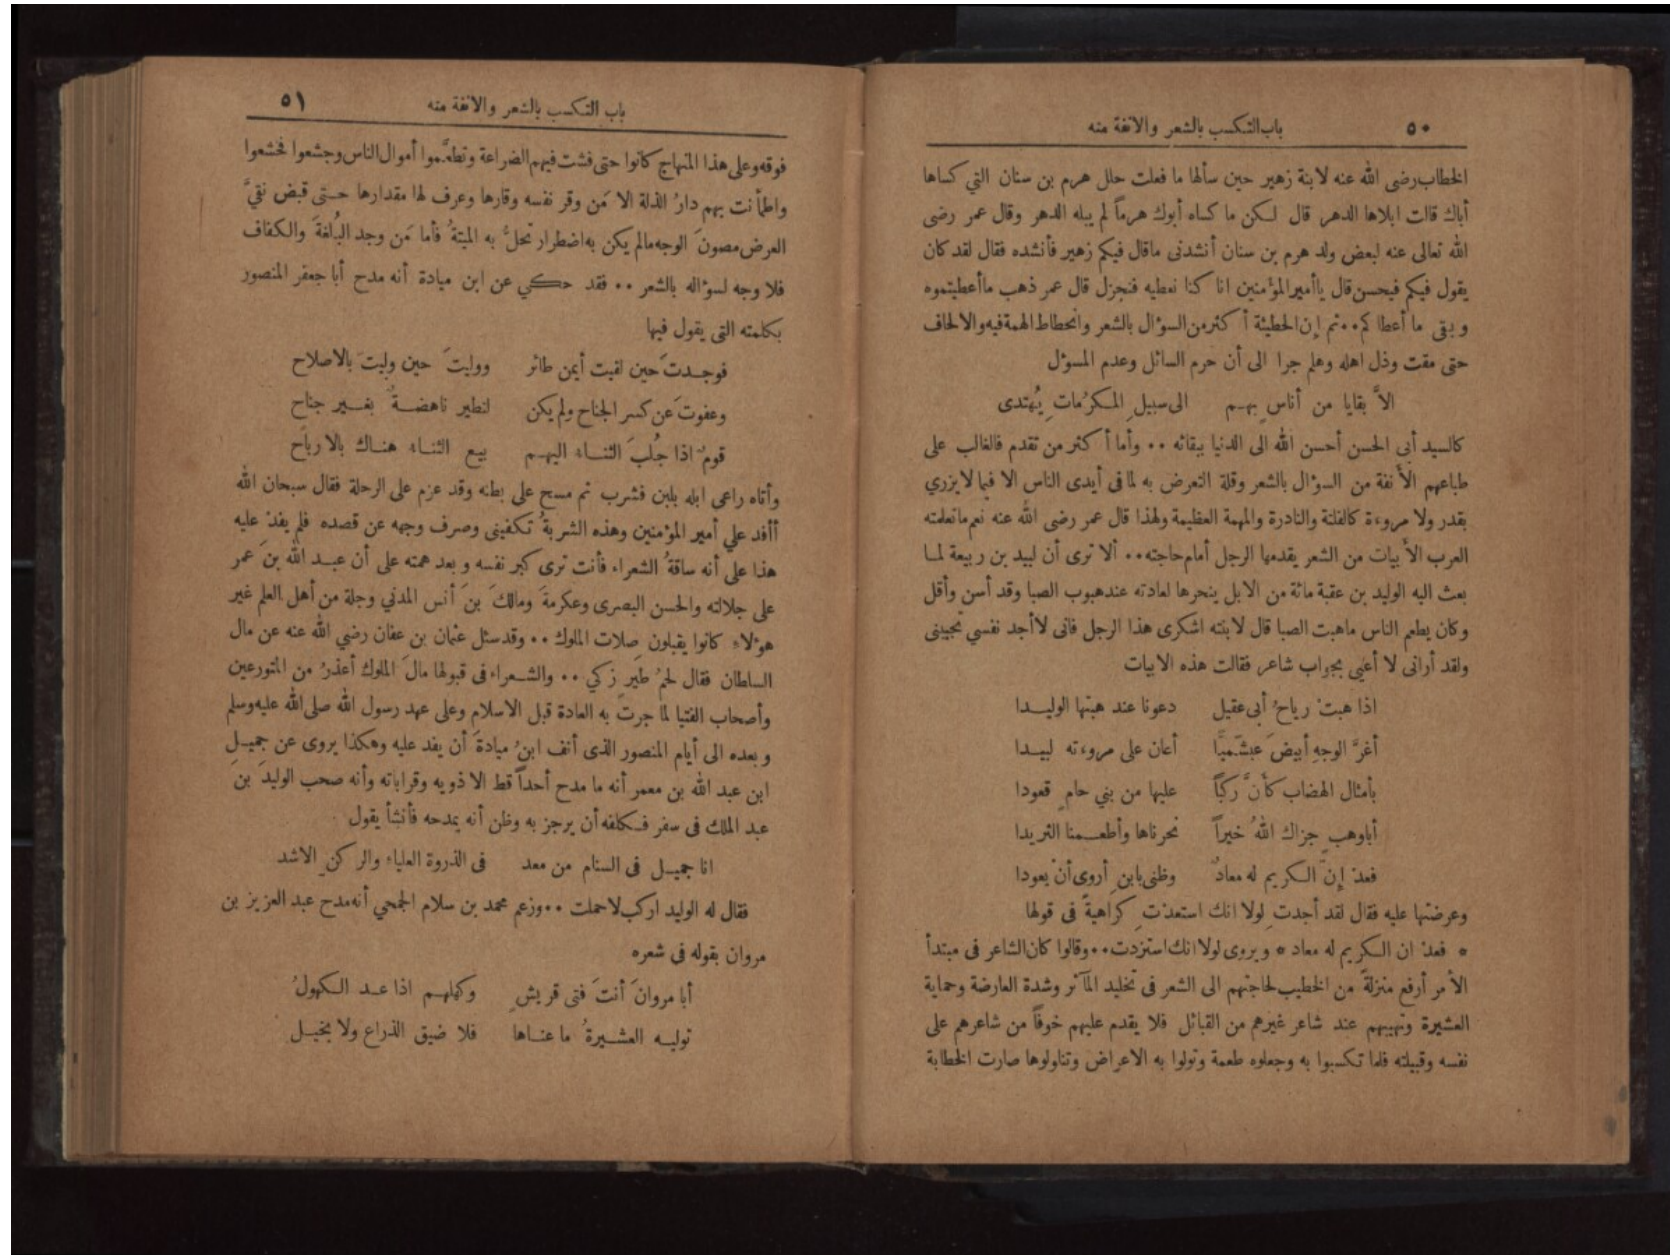 ٥٠ باب التكسب بالشعر والانفة منه
الخطاب رضى الله عنه لابنة زهير حين سألها ما فعلت حلل هرم بن سنان التي كساها
أباك قالت ابلاها الدهر قال لكن ما كساه أبوك هرماً لم يبله الدهر وقال عمر رضى
الله تعالى عنه لبعض ولد هرم بن سنان أنشدنى ماقال فيكم زهير فأنشده فقال لقد كان
يقول فيكم فيحسن قال ياأمير المؤمنين انا كنا نعطيه فنجزل قال عمر ذهب ماأعطيتموه
وبقى ما أعطاكم ٠٠ ثم إن الحطيئة أكثر من السوٴال بالشعر وانحطاط الهمة فيه والالحاف
حتى مقت وذل اهله وهلم جرا الى أن حرم السائل وعدم المسوٴل
الاَّ بقايا من أناسٍ بهم الى سبيلِ المكرُماتِ يُهتدى
كالسيد أبى الحسن أحسن الله الى الدنيا ببقائه ٠٠ وأما أكثر من تقدم فالغالب على
طباعهم الأنفة من السوٴال بالشعر وقلة التعرض به لما فى أيدى الناس الا فيما لايزري
بقدر ولا مروءة كالفلتة والنادرة والمهمة العظيمة ولهذا قال عمر رضى الله عنه نعم ماتعلمته
العرب الأبيات من الشعر يقدمها الرجل أمام حاجته ٠٠ ألا ترى أن لبيد بن ربيعة لما
بعث اليه الوليد بن عقبة مائة من الابل ينحرها لعادته عند هبوب الصبا وقد أسن وأقل
وكان يطعم الناس ماهبت الصبا قال لابنته اشكرى هذا الرجل فانى لاأجد نفسي تجيبنى
ولقد أرانى لا أعيى بجواب شاعر فقالت هذه الابيات
اذا هبتْ رياحُ أبى عقيل دعونا عند هبتها الوليدا
أغرَّ الوجهِ أبيضَ عبشميًّا أعان على مروءته لبيدا
بأمثال الهضاب كأنَّ ركباً عليها من بني حامٍ قعودا
أباوهبٍ جزاك اللهُ خيراً نحرناها وأطعمنا الثريدا
فعدْ إنَّ الكريم له معادٌ وظنى بابنِ أروى أنْ يعودا
وعرضتها عليه فقال لقد أجدتِ لولا انك استعدْتِ كراهيةً فى قولها
* فعدْ ان الكريم له معاد * ويروى لولا انك استزدت ٠٠ وقالوا كان الشاعر فى مبتدأ
الأمر أرفع منزلةً من الخطيب لحاجتهم الى الشعر فى تخليد المآثر وشدة العارضة وحماية
العشيرة وتهيبهم عند شاعر غيرهم من القبائل فلا يقدم عليهم خوفاً من شاعرهم على
نفسه وقبيلته فلما تكسبوا به وجعلوه طعمة وتولوا به الاعراض وتناولوها صارت الخطابة
باب التكسب بالشعر والانفة منه ٥١
فوقه وعلى هذا المنهاج كانوا حتى فشت فيهم الضراعة وتطعَّموا أموال الناس وجشعوا فخشعوا
واطمأنت بهم دارُ الذلة الا مَن وقر نفسه وقارها وعرف لها مقدارها حتى قبض نقيَّ
العرض مصونَ الوجه مالم يكن به اضطرار تحلُّ به الميتةُ فأما مَن وجد البُلغةَ والكفاف
فلا وجه لسوٴاله بالشعر ٠٠ فقد حكي عن ابن ميادة أنه مدح أبا جعفر المنصور
بكلمته التى يقول فيها
فوجدتَ حين لقيت أيمن طائر ووليتَ حين وليتَ بالاصلاح
وعفوتَ عن كسر الجناح ولم يكن لتطير ناهضةٌ بغير جناح
قومٌ اذا جُلبَ الثناء اليهم بيع الثناء هناك بالارباح
وأتاه راعى ابله بلبن فشرب ثم مسح على بطنه وقد عزم على الرحلة فقال سبحان الله
أأفد علي أمير المؤمنين وهذه الشربةُ تكفينى وصرف وجهه عن قصده فلم يفدْ عليه
هذا على أنه ساقةُ الشعراء فأنت ترى كبر نفسه وبعد همته على أن عبد الله بنَ عمر
على جلالته والحسن البصرى وعكرمةَ ومالكَ بنَ أنس المدني وجلة من أهل العلم غير
هوٴلاءِ كانوا يقبلون صِلات الملوك ٠٠ وقد سئل عثمان بن عفان رضي الله عنه عن مال
السلطان فقال لحمُ طيرٍ زكي ٠٠ والشعراء فى قبولها مالَ الملوك أعذرُ من المتورعين
وأصحاب الفتيا لما جرت به العادة قبل الاسلام وعلى عهد رسول الله صلى الله عليه وسلم
وبعده الى أيام المنصور الذى أنف ابنُ ميادةَ أن يفد عليه وهكذا يروى عن جميلِ
ابن عبد الله بن معمر أنه ما مدح أحداً قط الا ذويه وقراباته وأنه صحب الوليدَ بنَ
عبد الملك فى سفر فكلفه أن يرجز به وظن أنه يمدحه فأنشأ يقول
انا جميل فى السنام من معد فى الذروة العلياءِ والركنِ الاشد
فقال له الوليد اركب لاحملت ٠٠ وزعم محمد بن سلام الجمحي أنه مدح عبد العزيز بن
مروان بقوله فى شعره
أبا مروانَ أنتَ فتى قريشٍ وكهلهم اذا عد الكهولُ
توليه العشيرةُ ماعناها فلا ضيق الذراع ولا بخيل